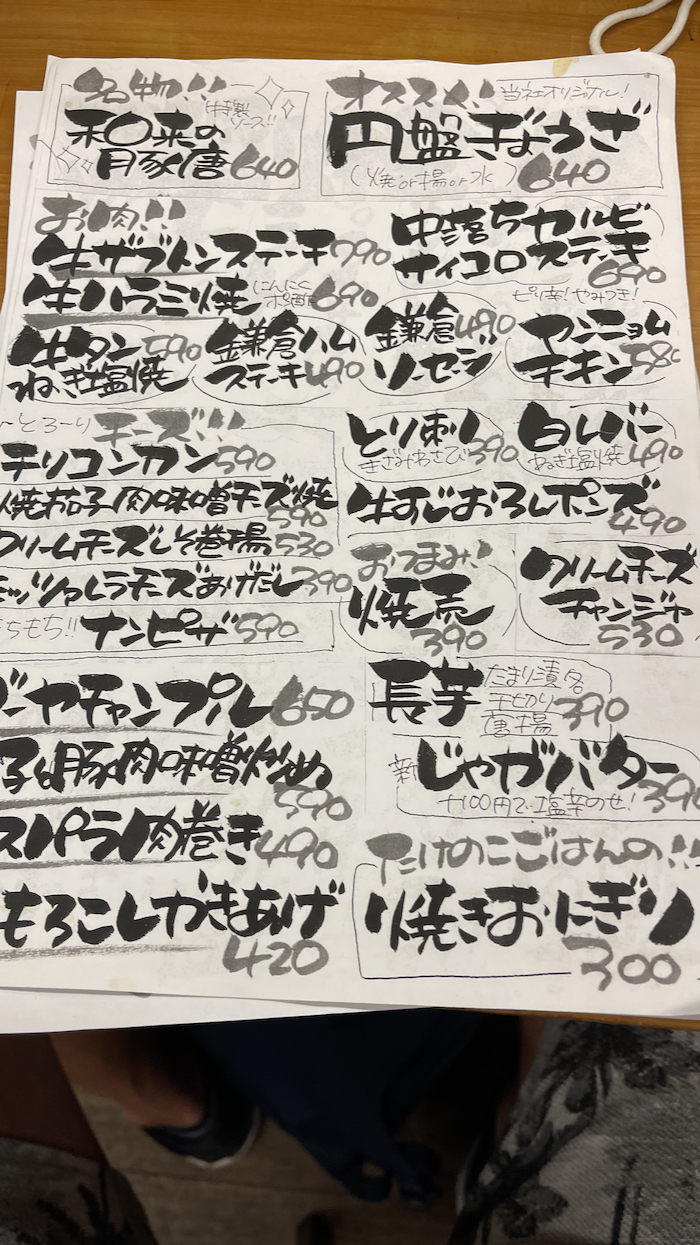 名物!!
特製
ソース!!
和〇来の
豚唐 640
オススメ!! 当社オリジナル!
円盤ぎょうざ
(焼or揚or水) 640
お肉!!
牛ザブトンステーキ 790
牛ハラミ焼 にんにくポン酢 690
中落ちカルビ
サイコロステーキ
690
牛タン 590
ねぎ塩焼
鎌倉ハム
ステーキ 490
鎌倉 490
ソーセージ
ピリ辛!やみつき!
ヤンニョム
チキン 580
〜とろ〜り チーズ!!!
チリコンカン 590
焼茄子肉味噌チーズ焼
590
クリームチーズしそ巻揚 530
モッツァレラチーズあげだし 390
もちもち!! ナンピザ 590
とり刺し
きざみわさび 390
白レバー
ねぎ塩焼 490
牛すじおろしポンズ
490
おつまみ!
焼売
390
クリームチーズ
チャンジャ
530
ーヤチャンプル 650
子と豚肉味噌炒め
590
スパラ肉巻き 490
もろこしかきあげ
420
長芋 たまり漬 or
千切り
唐揚 390
新 じゃがバター 390
+100円で塩辛のせ!
たけのこごはんの!!
焼きおにぎり
300